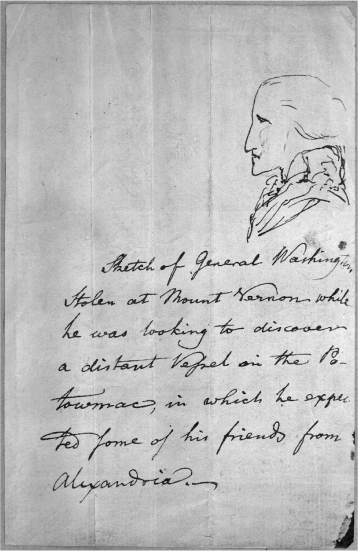 Sketch of General Washington,
Stolen at Mount Vernon while
he was looking to discover
a distant Veſsel on the Po-
towmac, in which he expec
ted Some of his friends from
Alexandria.